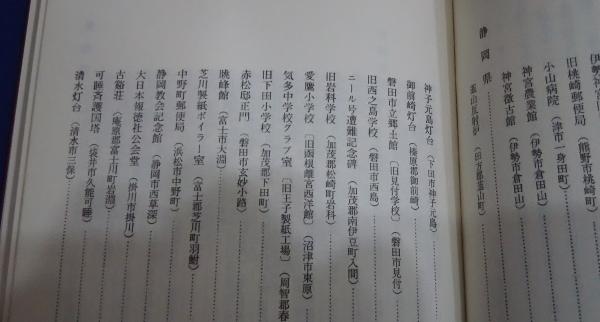 旧桃崎郵便局(熊野市桃崎町)
小山病院(津市一身田町)
神宮農業館(伊勢市倉田山)
神宮徴古館(伊勢市倉田山)
静岡県
韮山反射炉(田方郡韮山町)
神子元島灯台(下田市神子元島)
御前崎灯台(榛原郡御前崎)
磐田市立郷土館〔旧見付学校〕(磐田市見付)
旧西之島学校(磐田市西島)
ニール号遭難記念碑(加茂郡南伊豆町入間)
旧岩科学校(加茂郡松崎町岩科)
愛鷹小学校〔旧函根離宮西洋館〕(沼津市東原)
気多中学校クラブ室〔旧王子製紙工場〕(周智郡春
旧下田小学校(加茂郡下田町)
赤松邸正門(磐田市玄妙小路)
暁峰館(富士市大淵)
芝川製紙ボイラー室(富士郡芝川町羽鮒)
中野町郵便局(浜松市中野町)
静岡教会記念館(静岡市西草深)
大日本報徳社公会堂(掛川市掛川)
古谿荘(庵原郡富士川町岩淵)
可睡斎護国塔(袋井市久能可睡)
清水灯台(清水市三保)